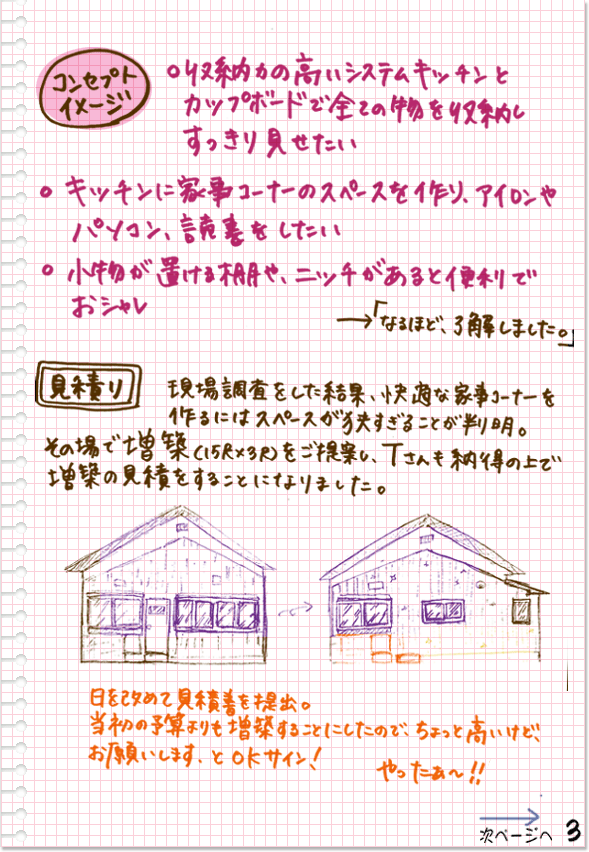 コンセプト
イメージ
○収納力の高いシステムキッチンと
カップボードで全ての物を収納し
すっきり見せたい
○ キッチンに家事コーナーのスペースを作り、アイロンや
パソコン、読書をしたい
○ 小物が置ける棚や、ニッチがあると便利で
おシャレ
→「なるほど、了解しました。」
見積り
現場調査をした結果、快適な家事コーナーを
作るにはスペースが狭すぎることが判明。
その場で増築(1.5R×3R)をご提案し、Tさんも納得の上で
増築の見積をすることになりました。
日を改めて見積書を提出。
当初の予算よりも増築することにしたので、ちょっと高いけど、
お願いします、とOKサイン!
やったぁ〜!!
次ページへ 3